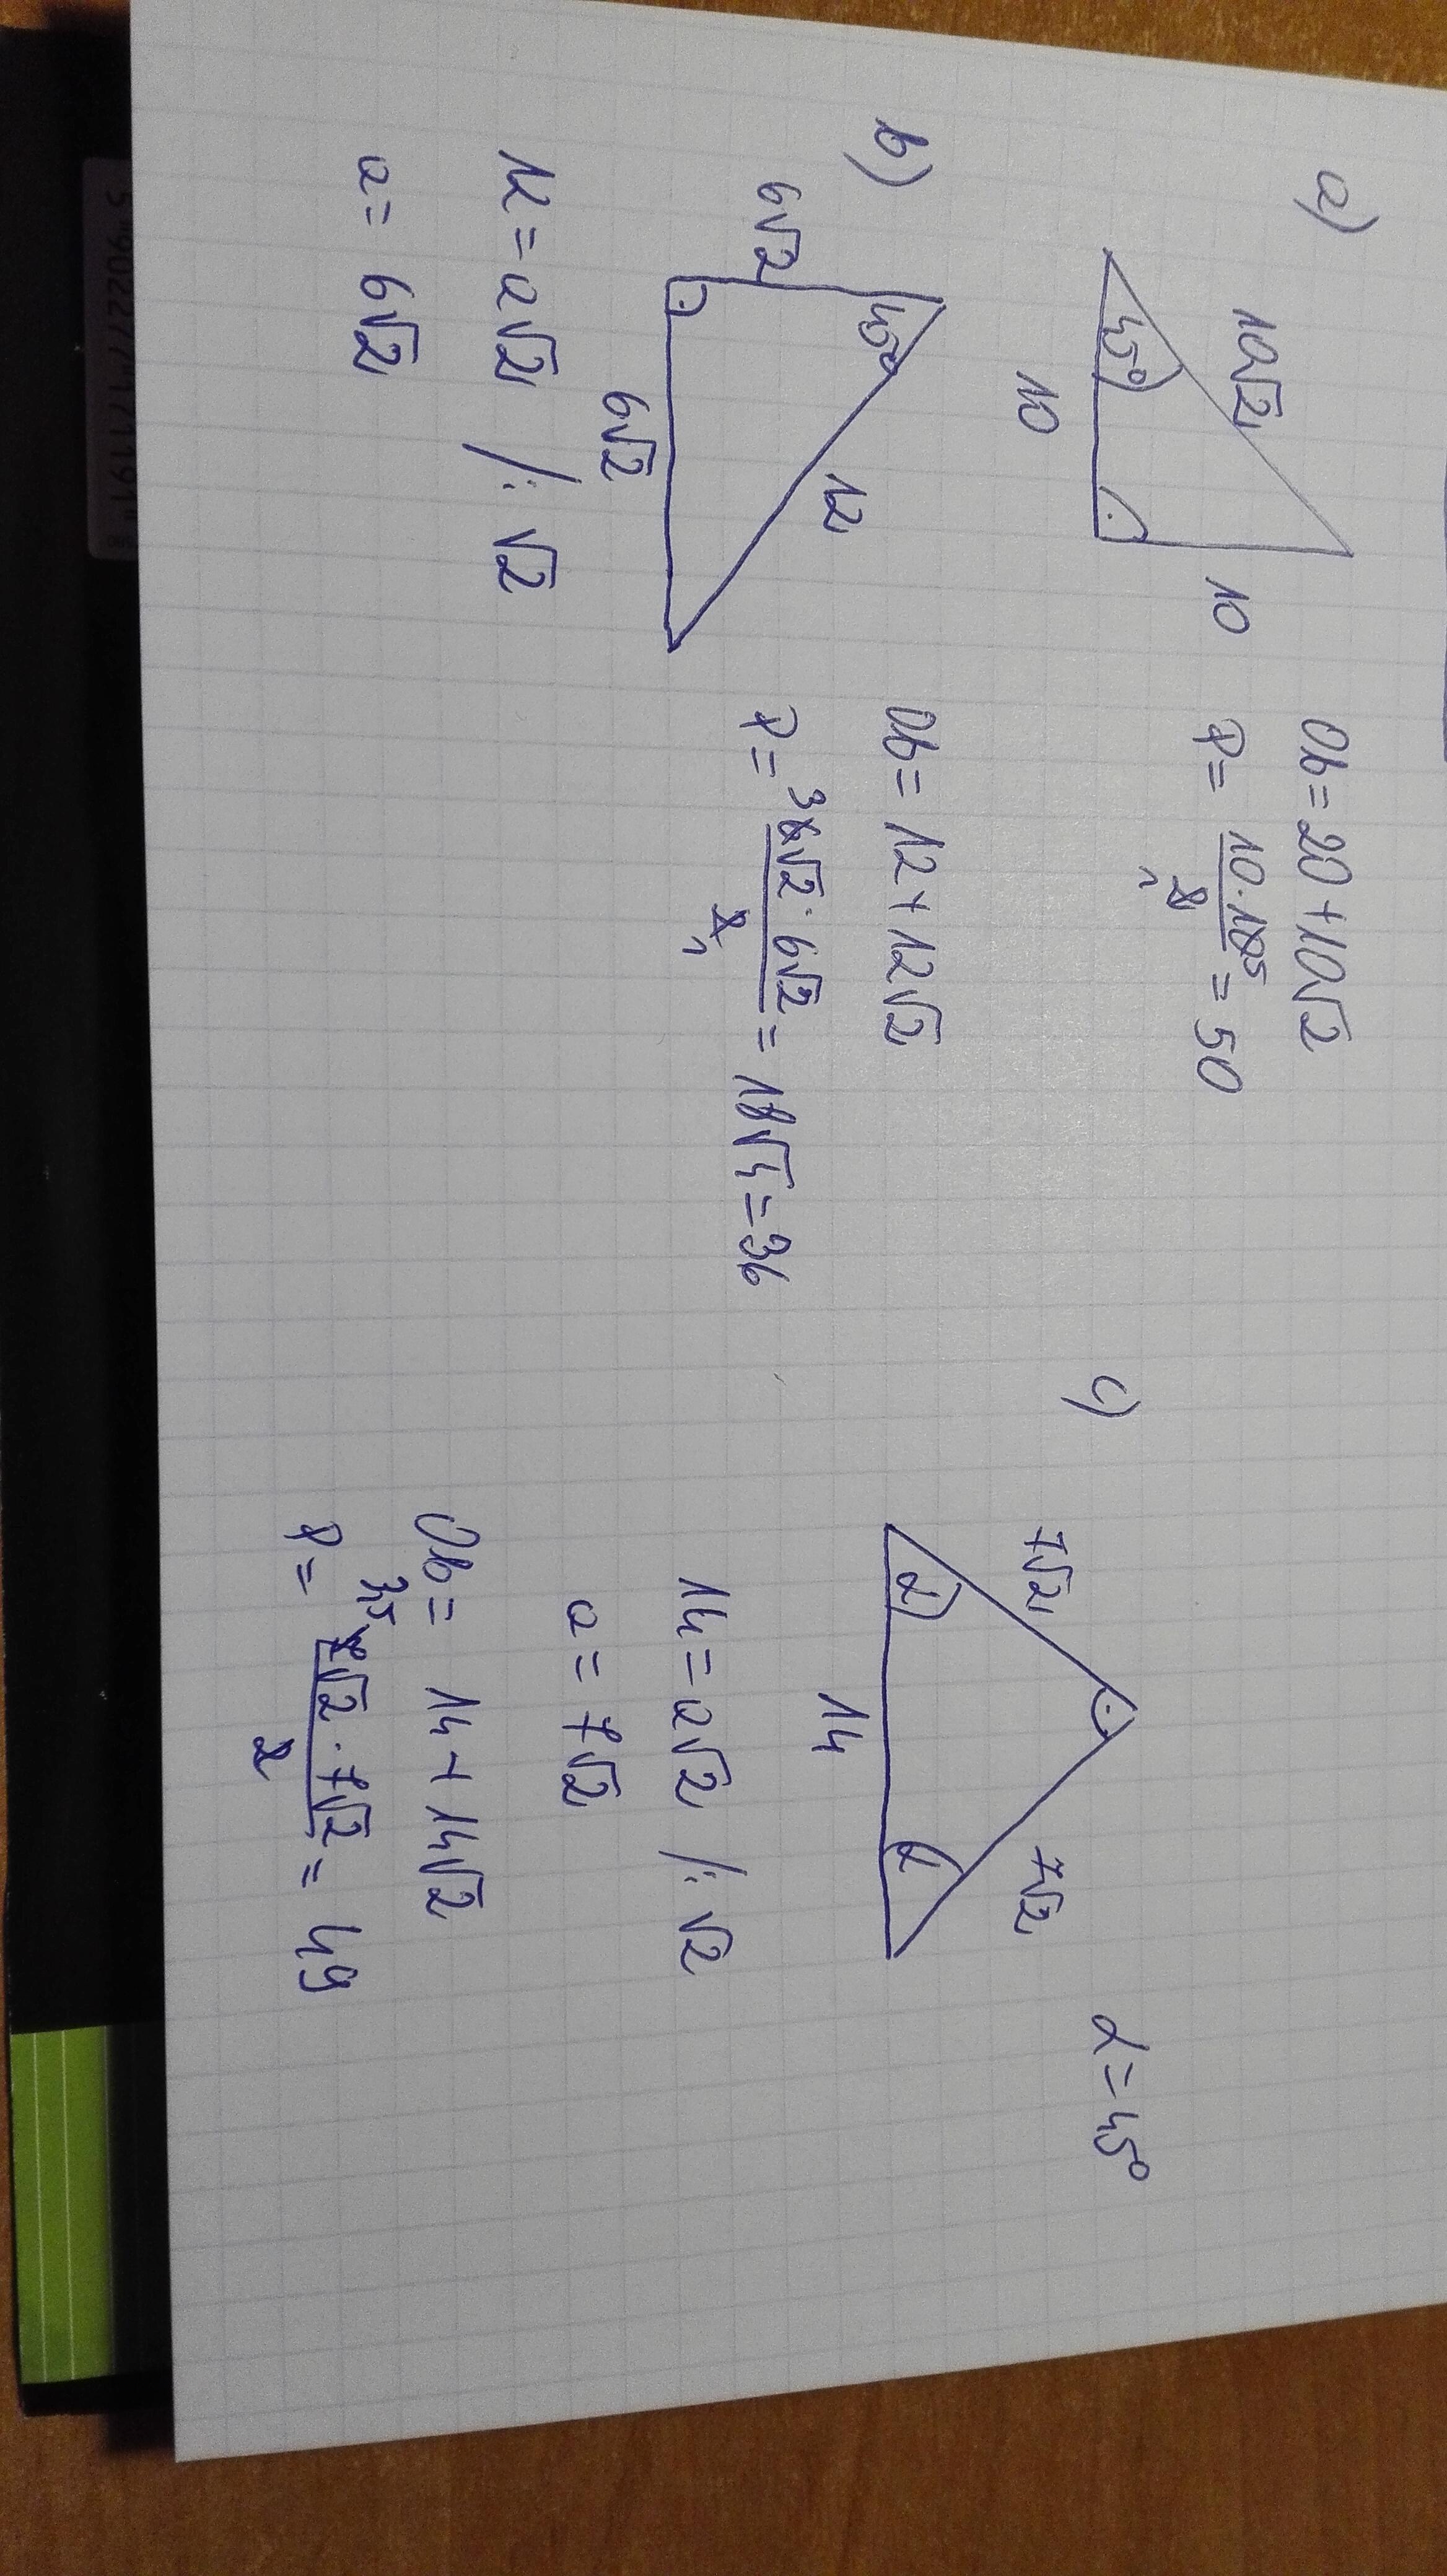 a)
10√2
45°
10
10
Ob = 20 + 10√2
P = 10 · 10 5 / 2 1 = 50
b)
6√2
45°
12
6√2
Ob = 12 + 12√2
P = 3 6√2 · 6√2 / 2 1 = 18√4 = 36
12 = a√2 /: √2
a = 6√2
c)
7√2
7√2
α
α
14
α = 45°
14 = a√2 /: √2
a = 7√2
Ob = 14 + 14√2
P = 3,5 7√2 · 7√2 / 2 = 49